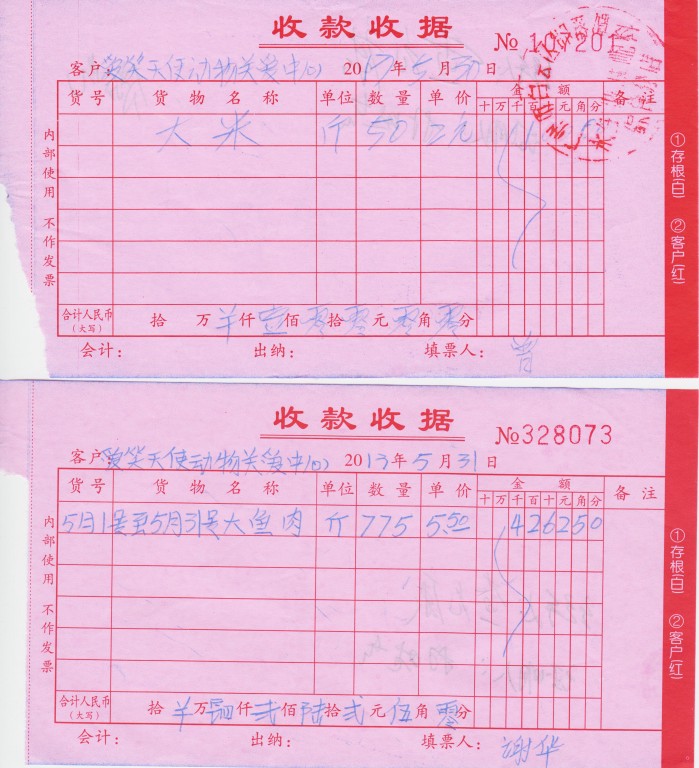 收款收据
客户: 笑笑天使动物关爱中心 2013年5月30日
货号 货物名称 单位 数量 单价 金额 备注
十 万 千 百 十 元 角 分
大米 斤 50
合计人民币 拾 万 羊 仟 壹 佰 零 拾 零 元 零 角 零 分
(大写)
会计: 出纳: 填票人: 曾
内部使用 不作发票
①存根(白) ②客户(红)
收款收据
№328073
客户: 笑笑天使动物关爱中心 2013年5月31日
货号 货物名称 单位 数量 单价 金额 备注
十 万 千 百 十 元 角 分
5月1号至5月31号大鱼肉 斤 775 5.50 426250
合计人民币 拾 羊 万 肆 仟 弐 佰 陆 拾 弐 元 伍 角 零 分
(大写)
会计: 出纳: 填票人: 谢华
内部使用 不作发票
①存根(白) ②客户(红)